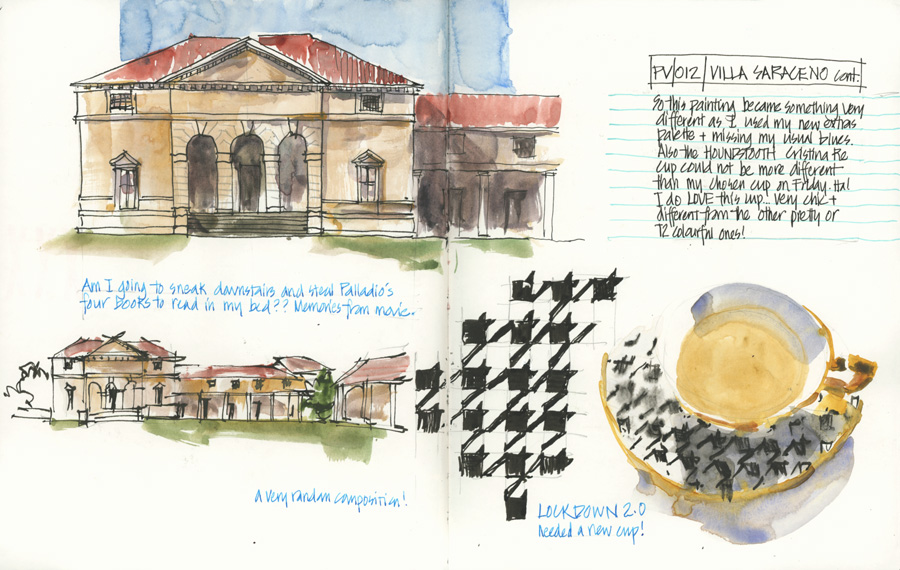 PV/012/VILLA SARACENO cont.
So this painting became something very
different as I used my new extras
palette + missing my usual blues.
Also the HOUNDSTOOTH Cristina Re
cup could not be more different
than my chosen cup on Friday. Ha!
I do LOVE this cup. Very chic +
different from the other pretty or
T2 colourful ones!
Am I going to sneak downstairs and steal Palladio's
four books to read in my bed?? Memories from movie.
a very random composition!
LOCKDOWN 2.0
needed a new cup!